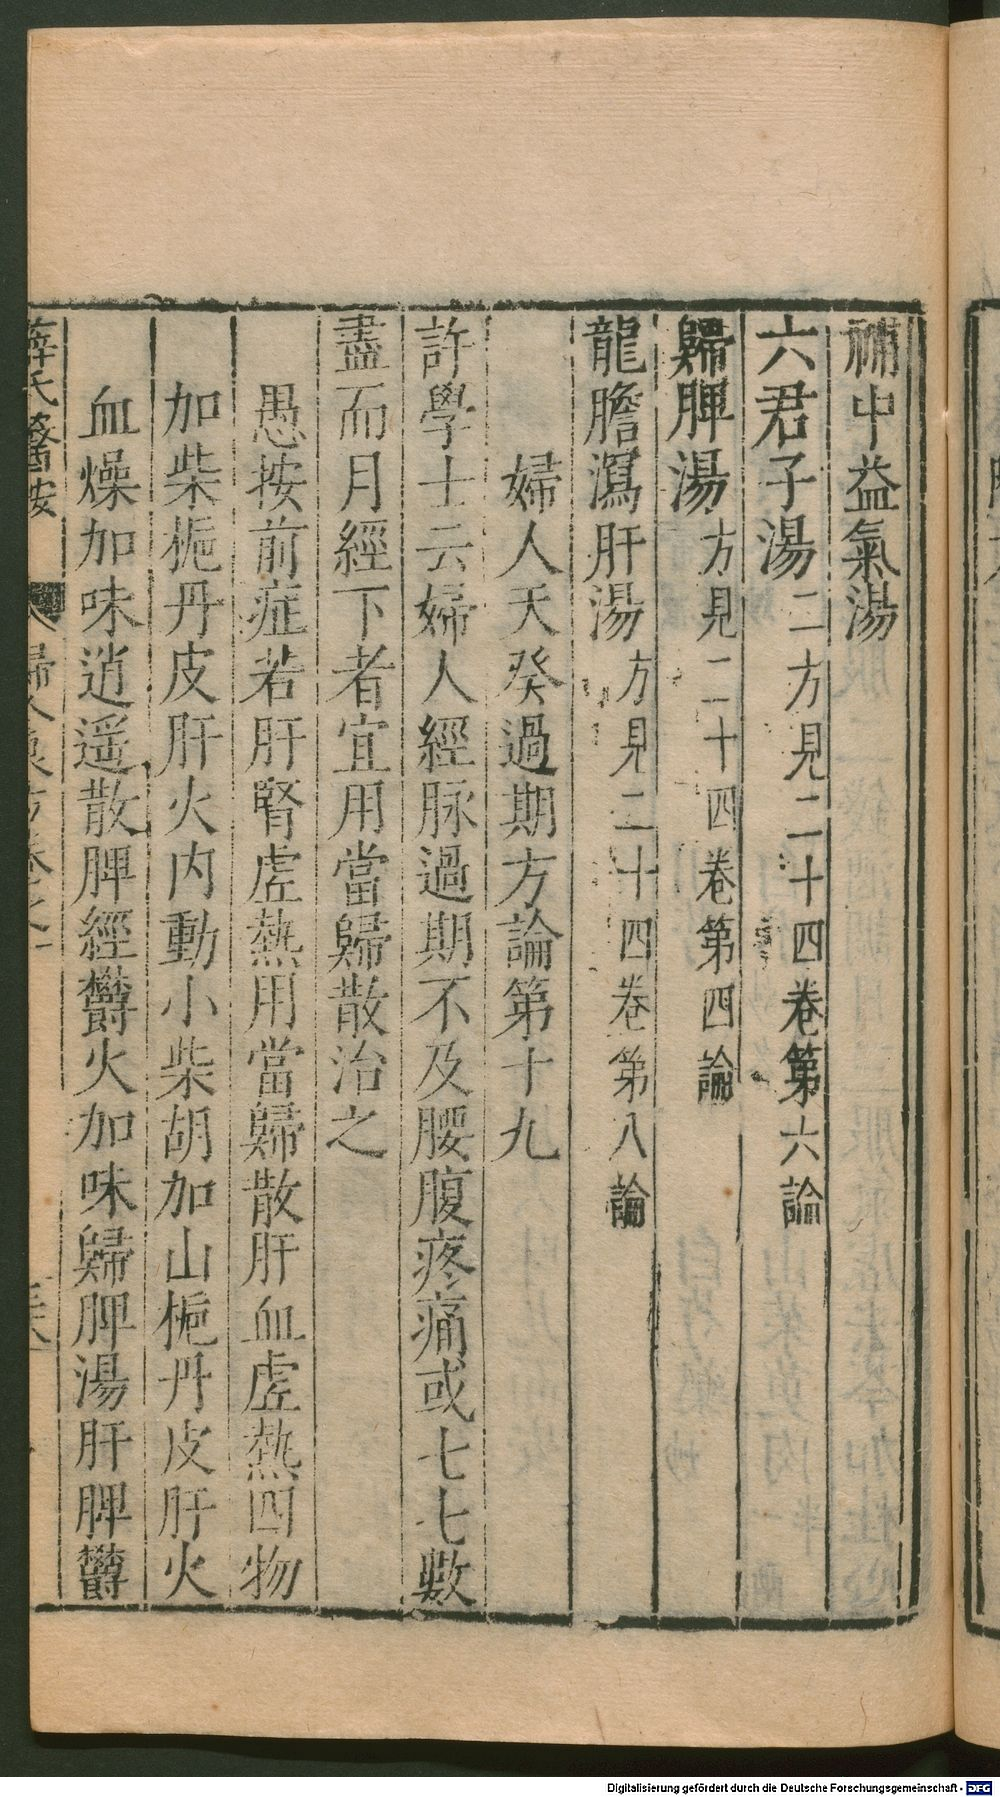 補中益氣湯
六君子湯二方見二十四卷第六論
歸脾湯方見二十四卷第四論
龍膽瀉肝湯方見二十四卷第八論
婦人天癸過期方論第十九
許學士云婦人經脉過期不及腰腹疼痛或七七數
盡而月經下者宜用當歸散治之
愚按前症若肝腎虛熱用當歸散肝血虛熱四物
加柴梔丹皮肝火内動小柴胡加山梔丹皮肝火
血燥加味逍遥散脾經欝火加味歸脾湯肝脾欝
薛氏醫按 婦人良方卷之一
Digitalisierung gefördert durch die Deutsche Forschungsgemeinschaft - DFG